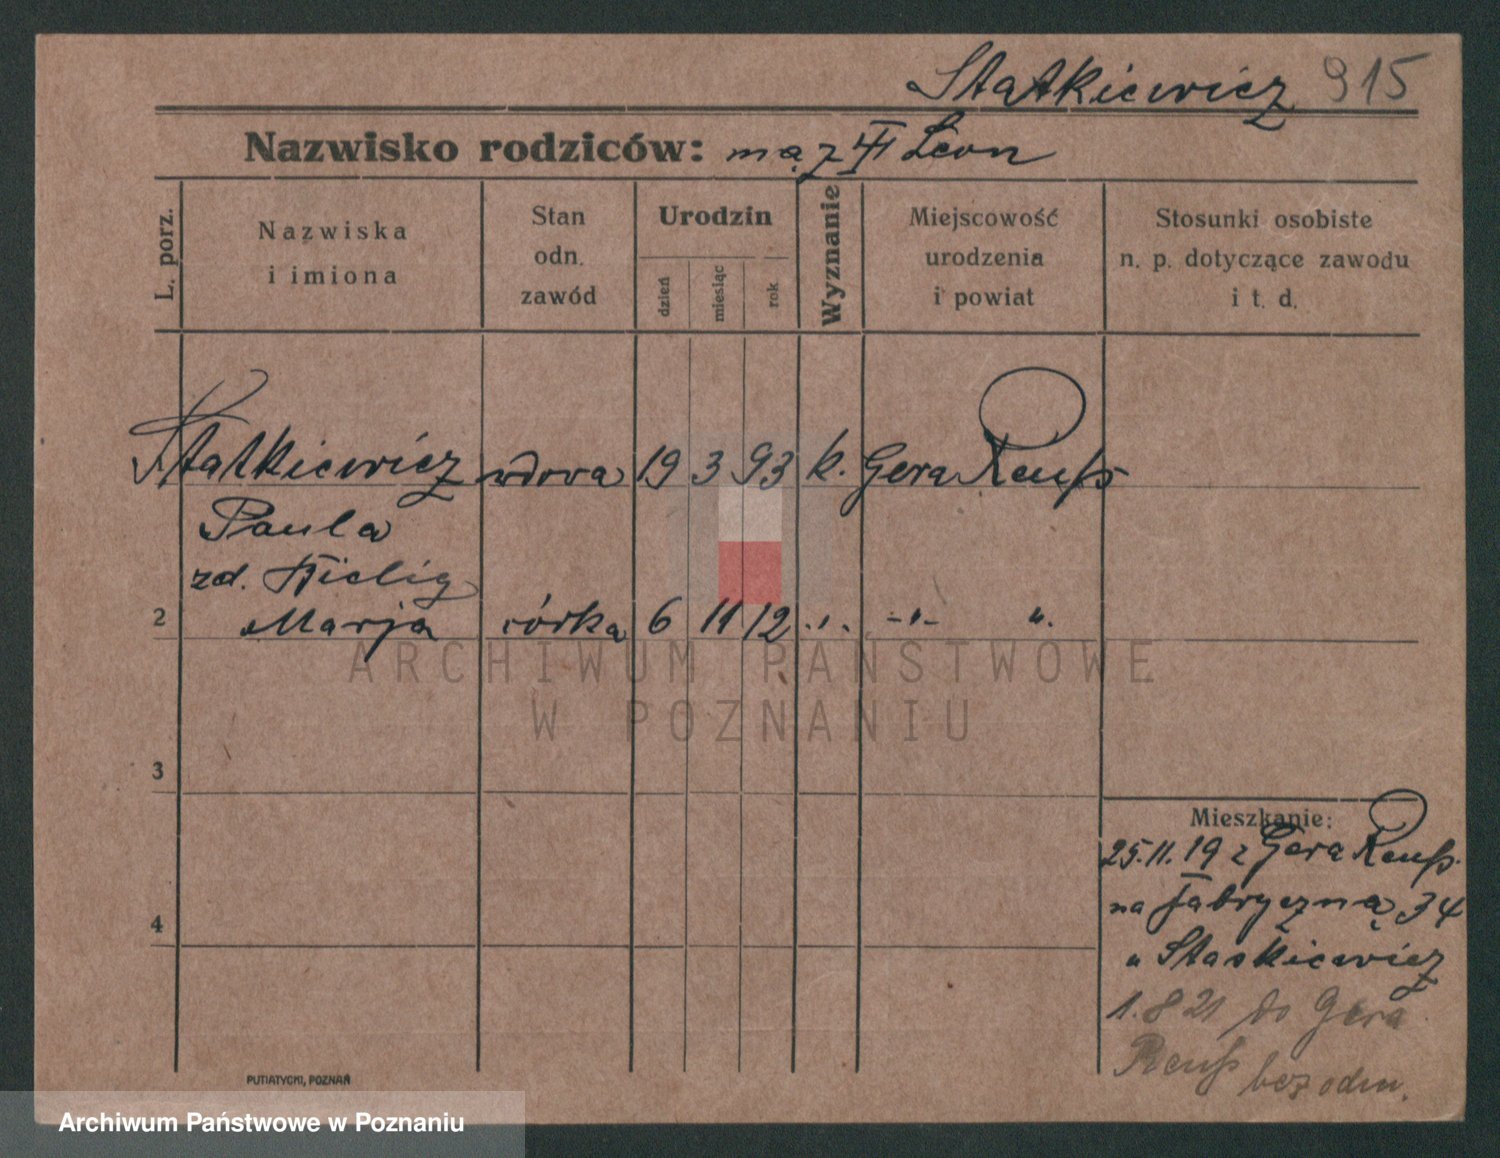 Statkiewicz 915
Nazwisko rodziców: mąż Leon
L. porz.
Nazwiska
i imiona
Stan
odn.
zawód
Urodzin
dzień
miesiąc
rok
Wyznanie
Miejscowość
urodzenia
i powiat
Stosunki osobiste
n. p. dotyczące zawodu
i t. d.
Statkiewicz wdowa 19 3 93 k. Gera Reuß
Paula
zd.
2 Marja córka 6 11 12 . " . - " - ".
ARCHIWUM PAŃSTWOWE
W POZNANIU
3
Mieszkanie:
25.11.19 z Gera Reuß.
na Fabryczną 34
4
" Staśkiewicz
1.8 21 do Gera
Reuß bez odm.
PUTIATYCKI, POZNAŃ
Archiwum Państwowe w Poznaniu